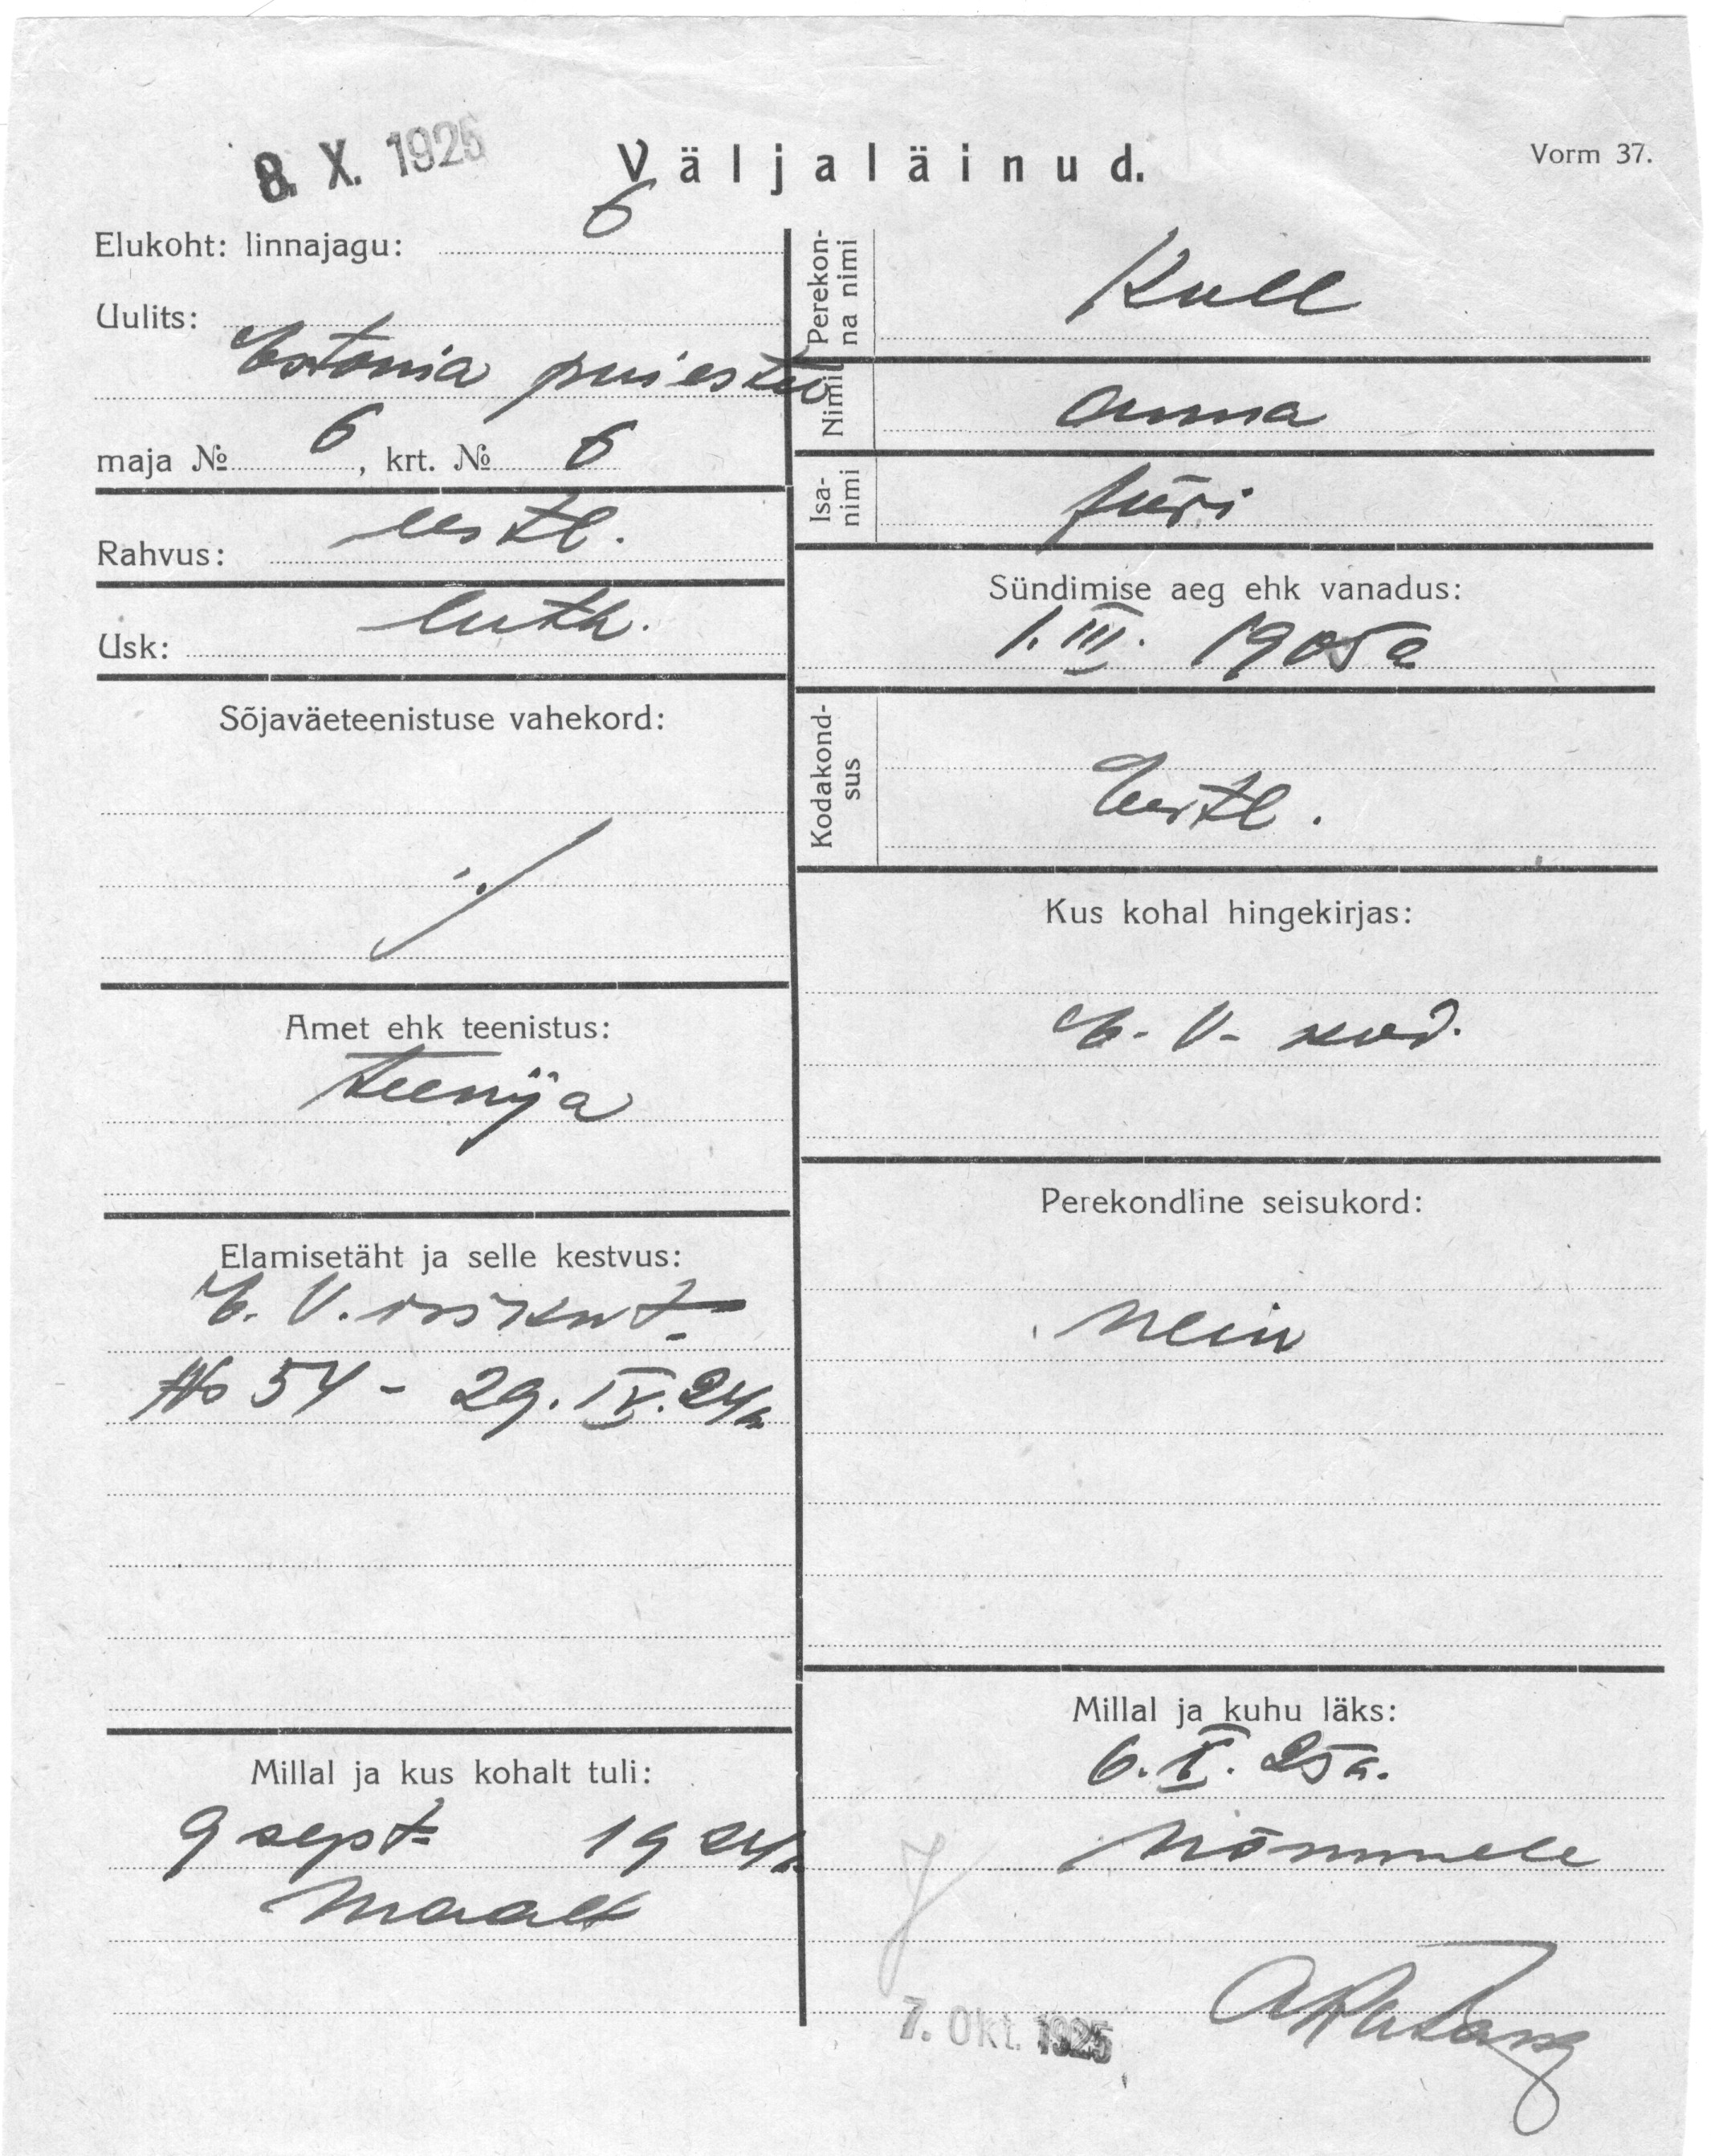 8. X. 1925
Väljaläinud.
Vorm 37.
Elukoht: linnajagu: 6
Uulits:
Estonia puiestee
maja № 6, krt. № 6
Rahvus: eestl.
Usk: luth.
Sõjaväeteenistuse vahekord:
Amet ehk teenistus:
teenija
Elamisetäht ja selle kestvus:
E. V. isikut-
No 54 - 29. IV. 24a
Millal ja kus kohalt tuli:
9 sept 1924a
Maalt
Perekonna nimi
Kull
Nimi
Anna
Isanimi
Jüri
Sündimise aeg ehk vanadus:
1. III. 1905a
Kodakondsus
Eestl.
Kus kohal hingekirjas:
E. V. kod.
Perekondline seisukord:
Neiu
Millal ja kuhu läks:
6. X. 25a.
Nõmmele
7. Okt. 1925